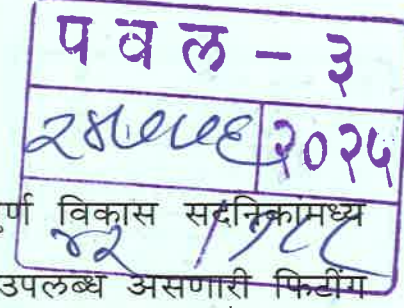 प व ल - ३
२४७७६ २०२५
र्ण विकास सदनिकांमध्ये
४२ / १८८
उपलब्ध असणारी फिटींग